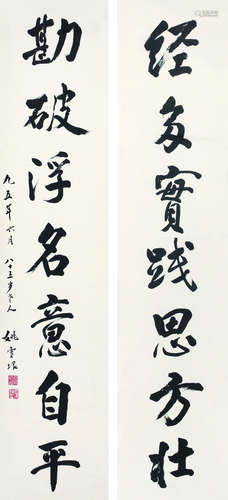 经多實践思方壮
勘破浮名意自平
九五年六月 八十三岁老人
姚雪垠